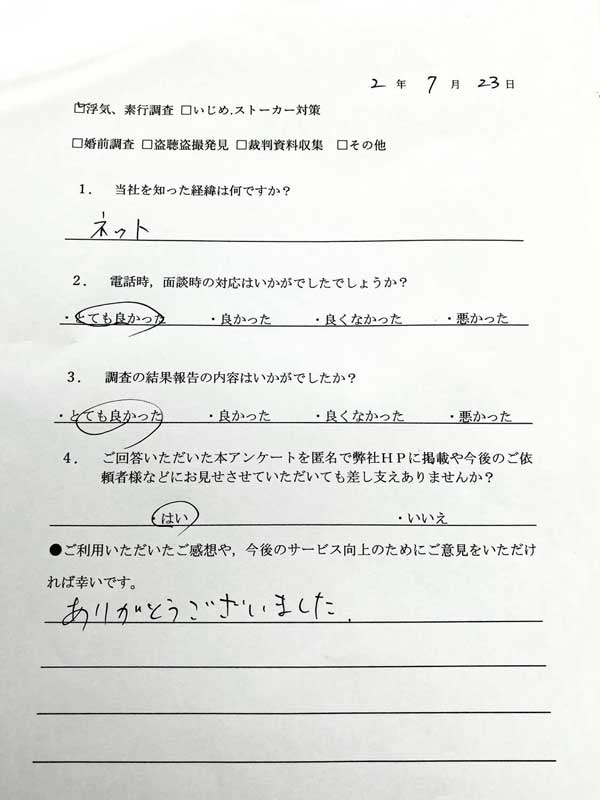 2 年 7 月 23 日
☑浮気、素行調査 □いじめ.ストーカー対策
□婚前調査 □盗聴盗撮発見 □裁判資料収集 □その他
１． 当社を知った経緯は何ですか？
ネット
２． 電話時，面談時の対応はいかがでしたでしょうか？
・とても良かった ・良かった ・良くなかった ・悪かった
３． 調査の結果報告の内容はいかがでしたか？
・とても良かった ・良かった ・良くなかった ・悪かった
４． ご回答いただいた本アンケートを匿名で弊社ＨＰに掲載や今後のご依
頼者様などにお見せさせていただいても差し支えありませんか？
・はい ・いいえ
●ご利用いただいたご感想や，今後のサービス向上のためにご意見をいただけ
れば幸いです。
ありがとうございました.